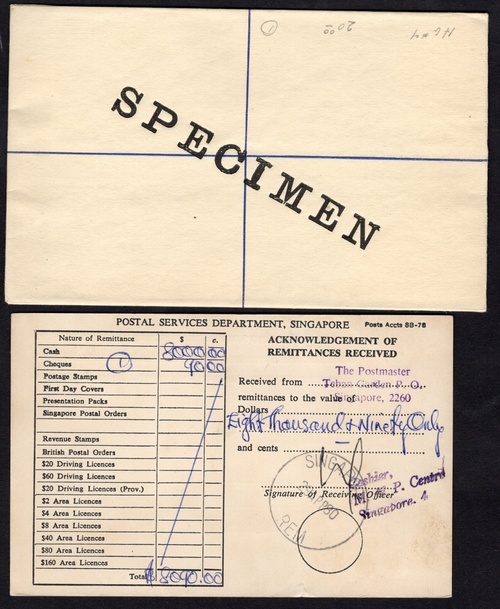 20.00
SPECIMEN
POSTAL SERVICES DEPARTMENT, SINGAPORE Posts Accts 8B-78
Nature of Remittance $ c.
Cash 8000 00
Cheques 1 90 00
Postage Stamps
First Day Covers
Presentation Packs
Singapore Postal Orders
Revenue Stamps
British Postal Orders
$20 Driving Licences
$60 Driving Licences
$20 Driving Licences (Prov.)
$2 Area Licences
$4 Area Licences
$8 Area Licences
$40 Area Licences
$80 Area Licences
$160 Area Licences
Total $8090.00
ACKNOWLEDGEMENT OF
REMITTANCES RECEIVED
The Postmaster
Received from Garden P. O.,
remittances to the value of Singapore, 2260
Dollars
Eight Thousand & Ninety Only
and cents
Signature of Receiving Officer
Cashier,
P. Centre
Singapore. 4
REM